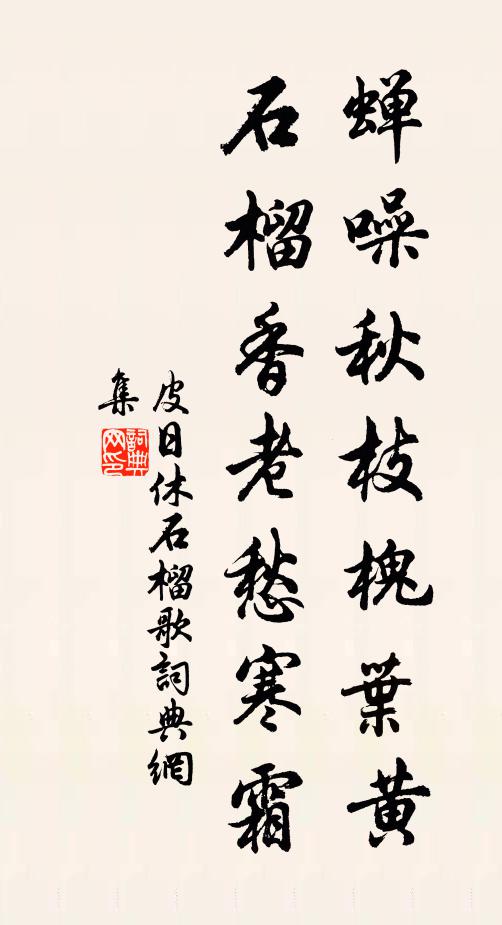 蝉噪秋枝槐葉黄
石榴香老愁寒霜
皮日休石榴歌詞典網
集
詞典网印